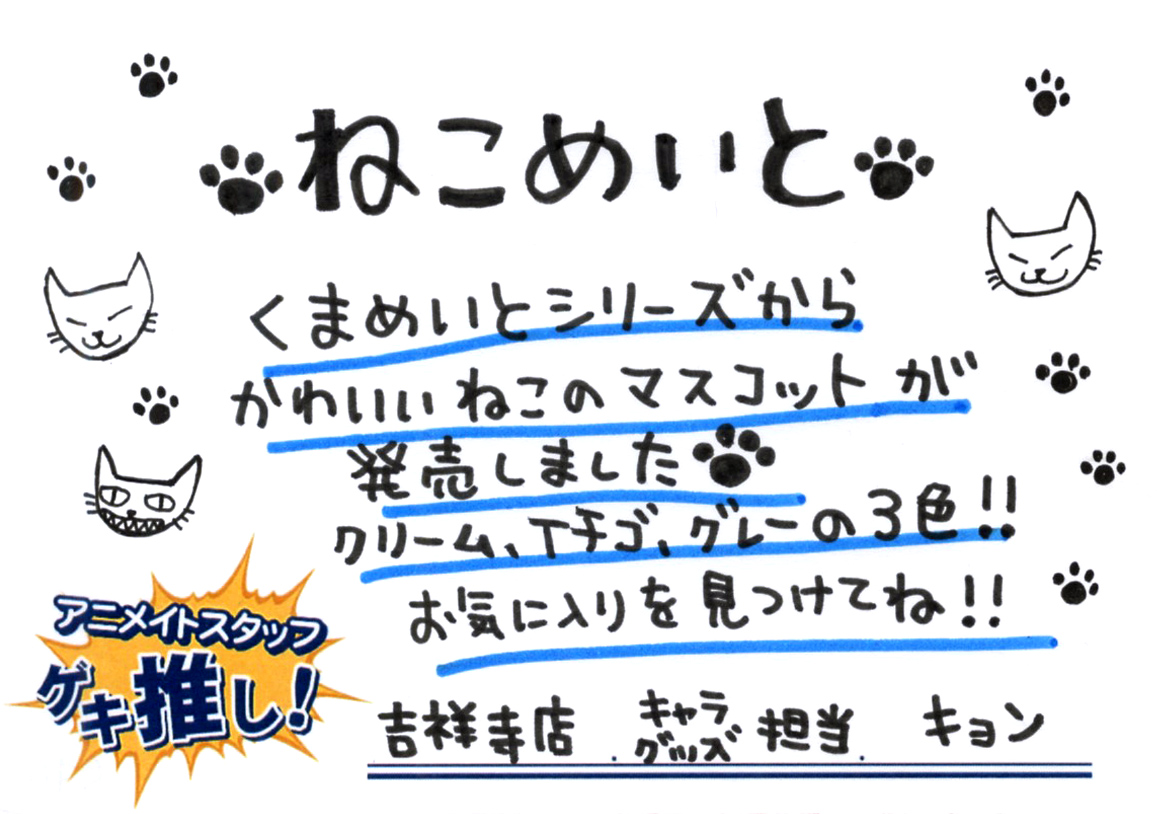 ねこめいと
くまめいとシリーズから
かわいいねこのマスコットが
発売しました
クリーム、イチゴ、グレーの3色!!
お気に入りを見つけてね!!
アニメイトスタッフ
ゲキ推し!
吉祥寺店.キャラグッズ担当.キョン